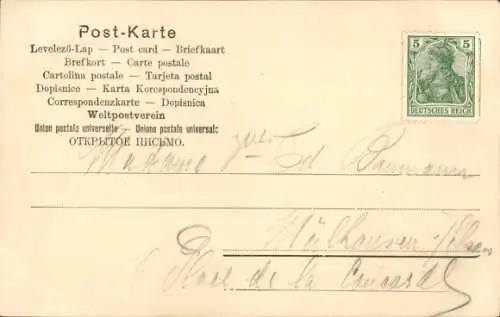 Post-Karte
Levelező-Lap — Post card — Briefkaart
Brefkort — Carte postale
Cartolina postale — Tarjeta postal
Dopisnice — Karta Korespondencyjna
Correspondenzkarte — Dopisnica
Weltpostverein
Union postale universelle — Unione postale universal:
ОТКРЫТОЕ ПИСЬМО.
5 5
DEUTSCHES REICH
Madame Ed
Mülhausen
Place de la Concorde